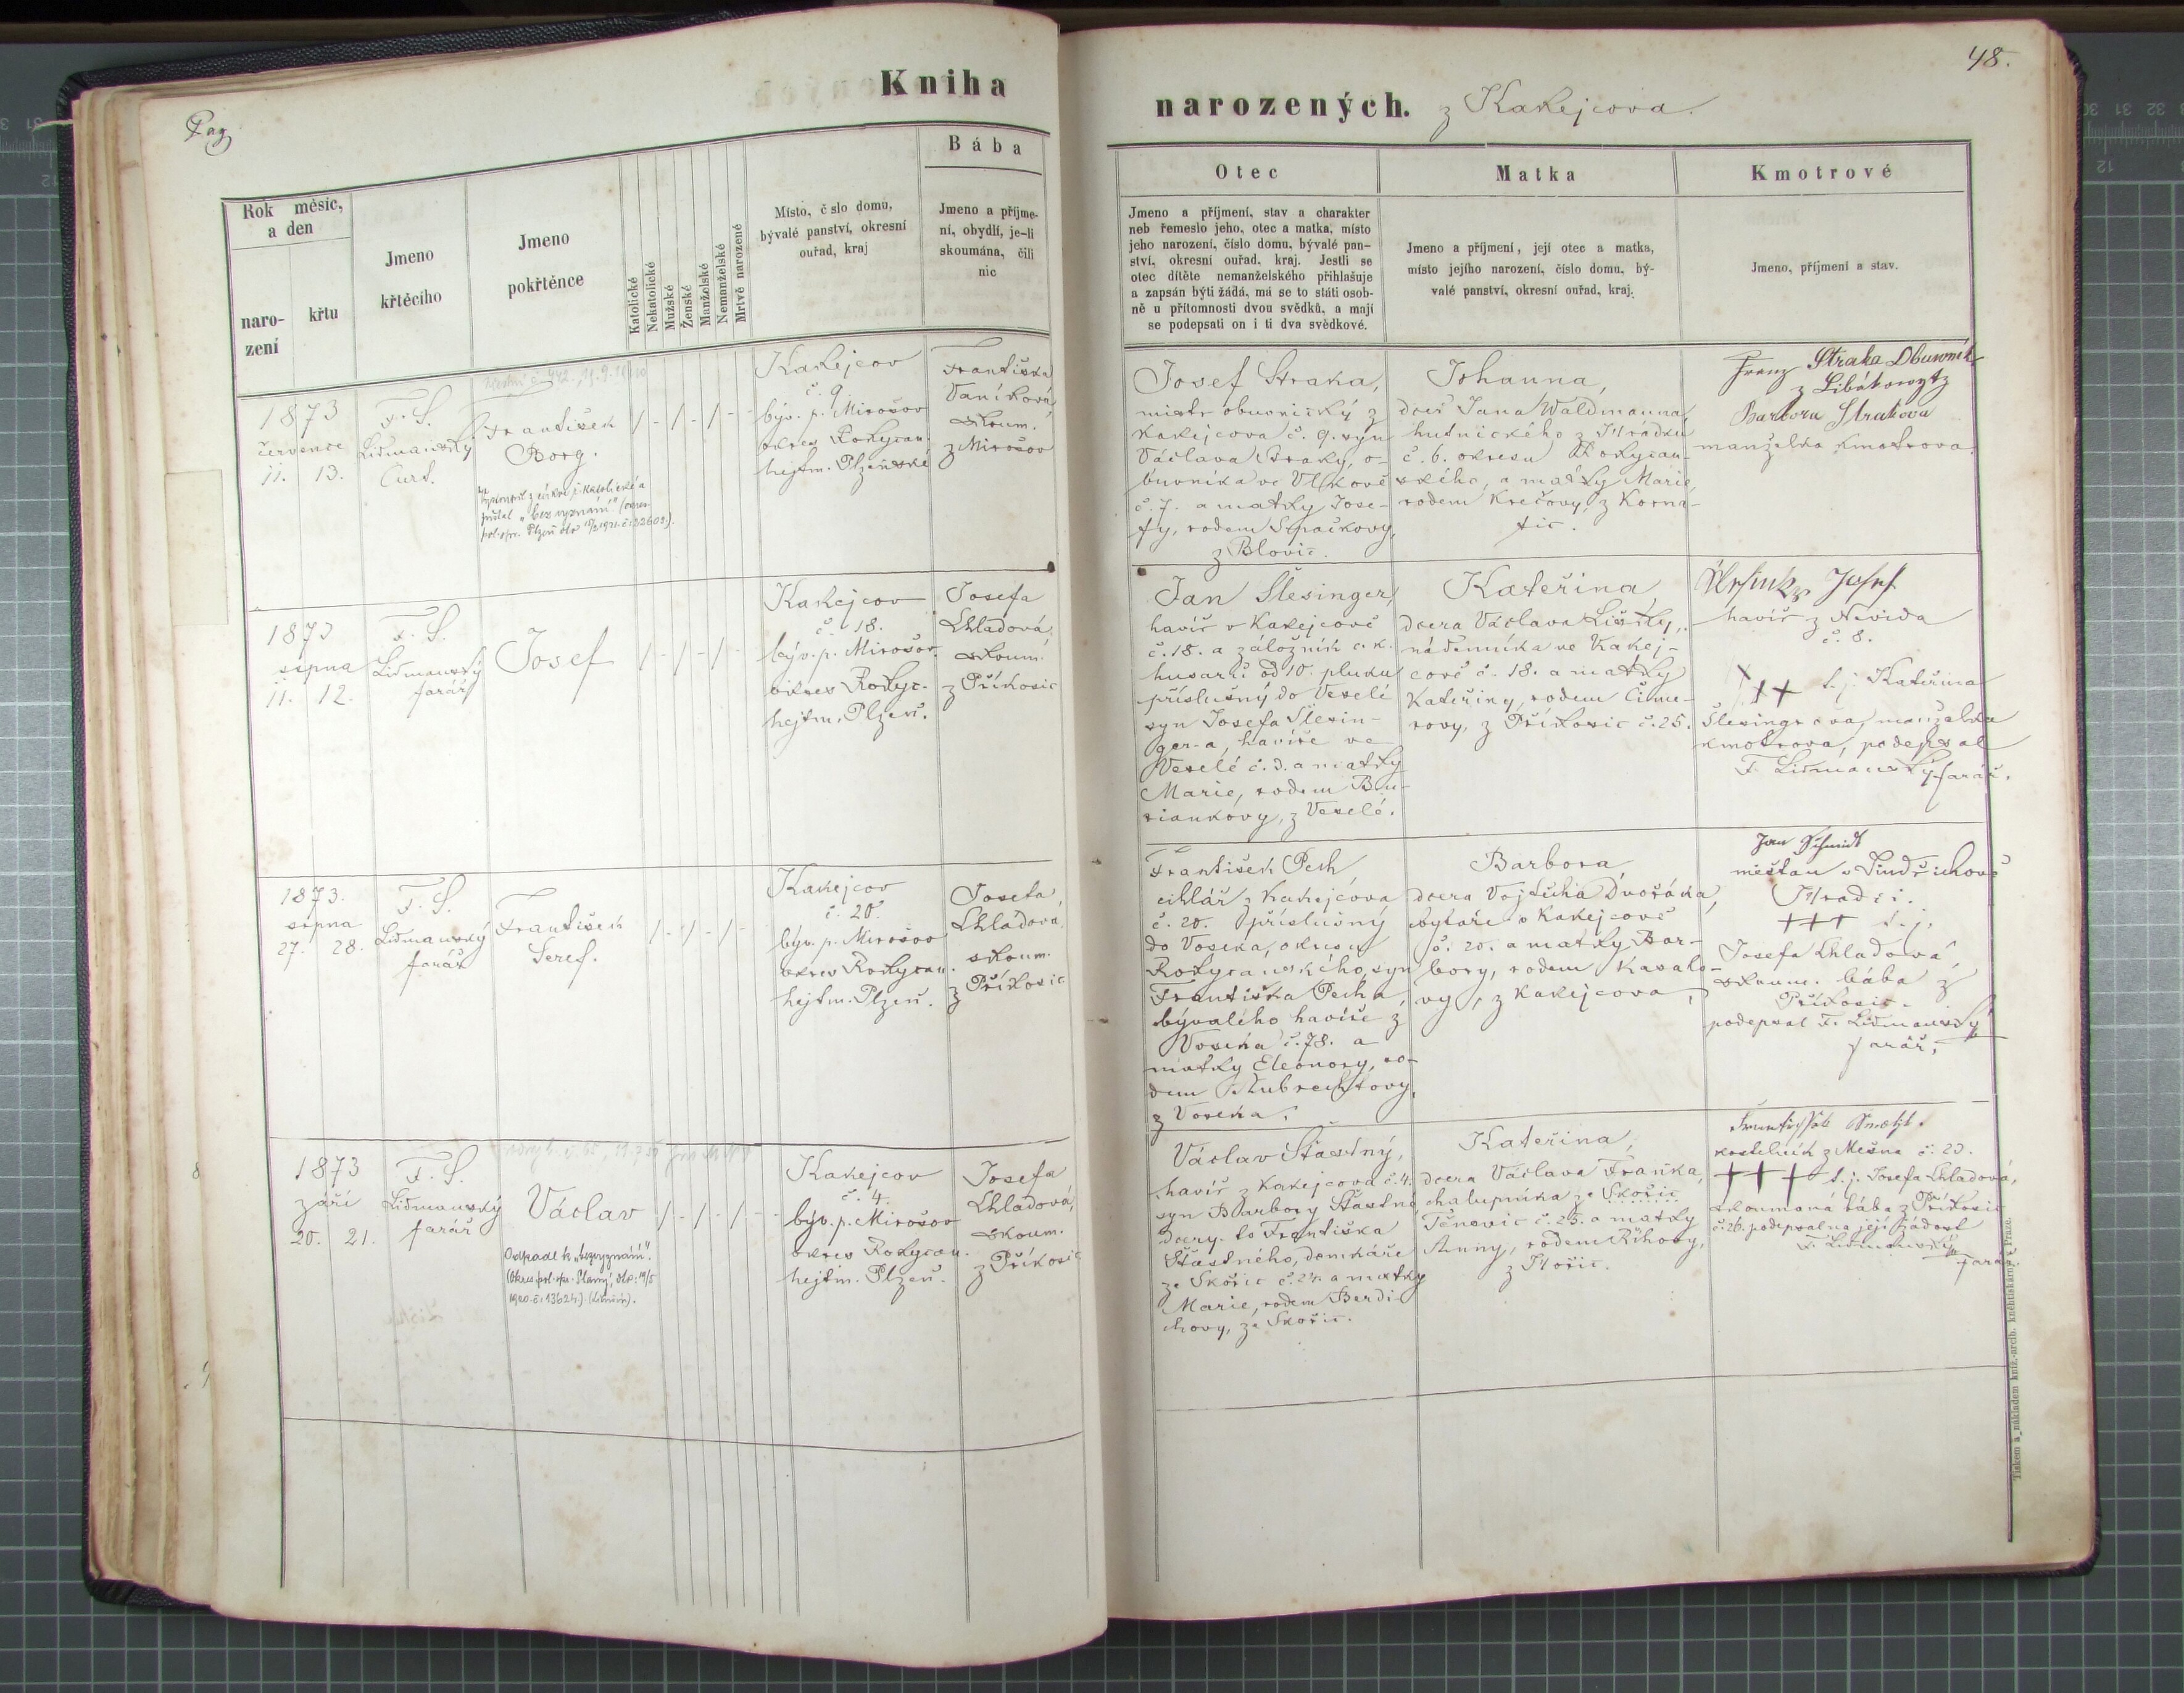 Pag
Kniha
narozených. z Kakejcova.
48.
Rok měsíc,
a den
naro-
zení
křtu
Jmeno
křtěcího
Jmeno
pokřtěnce
Katolické
Nekatolické
Mužské
Ženské
Manželské
Nemanželské
Mrtvě narozené
Místo, č slo domu,
bývalé panství, okresní
ouřad, kraj
Bába
Jmeno a příjme-
ní, obydlí, je-li
skoumána, čili
nic
Otec
Jmeno a příjmení, stav a charakter
neb řemeslo jeho, otec a matka, místo
jeho narození, číslo domu, bývalé pan-
ství, okresní ouřad, kraj. Jestli se
otec dítěte nemanželského přihlašuje
a zapsán býti žádá, má se to státi osob-
ně u přítomnosti dvou svědků, a mají
se podepsati on i ti dva svědkové.
Matka
Jmeno a příjmení, její otec a matka,
místo jejího narození, číslo domu, bý-
valé panství, okresní ouřad, kraj.
Kmotrové
Jmeno, příjmení a stav.
1873
července
11. 13.
F. S.
Lidmanský
Curt.
František
Borg.
Vystoupil z církve ř. katolické a
zůstal „bez vyznání" (okres.
pol. spr. Plzeň
1 - 1 - 1 - -
Kakejcov
č. 9.
býv. p. Mirošov
okres Rokycan.
hejtm. Plzeňské
Františka
Vaníková
skoum.
z Mirošov
Josef Straka,
mistr obuvnický z
Kakejcova č. 9. syn
Václava Straky, o-
buvníka ve Vlkově
č. 7. a matky Jose-
fy, rodem Spačkovy,
z Blovic.
Johanna,
dcer Jana Waldmanna,
hutnického z Hrádku
č. 6. okresu Rokycan-
ského, a matky Marie,
rodem Krečovy, z Korna-
tic.
Franz Straka Obuwnik
z Libákowytz
Barbora Strakova
manželka kmotrova.
1873
srpna
11. 12.
F. S.
Lidmanský
farář
Josef
1 - 1 - 1 -
Kakejcov
č. 18.
býv. p. Mirošov
okres Rokyc.
hejtm. Plzeň.
Josefa
Chladová,
skoum.
z Příkosic
Jan Šlesinger,
havíř v Kakejcově
č. 18. a záložník c. k.
husarů od 10. pluku
příslušný do Veselé
syn Josefa Šlesin-
ger-a, havíře ve
Veselé č. 3. a matky
Marie, rodem Bu-
riankovy, z Veselé.
Kateřina
dcera Václava Lišky,
nádenníka ve Kakej-
cově č. 18. a matky
Kateřiny, rodem
rovy, z Příkosic č. 25.
Josef
havíř z Nevida
č. 8.
+++ t. j. Kateřina
Šlesingrova, manželka
kmotrova, podepsal
F. Lidmanský farář.
1873.
srpna
27. 28.
F. S.
Lidmanský
farář
František
Seref.
1 - 1 - 1 -
Kakejcov
č. 20.
býv. p. Mirošov
okres Rokycan.
hejtm. Plzeň.
Josefa,
Chladova,
skoum.
z Příkosic
František Pech,
cihlář z Kakejcova
č. 20. příslušný
do Voseka, okresu
Rokycanského, syn
Františka Pecha,
bývalého havíře z
Voseka č. 78. a
matky Eleonory, ro-
dem Kubrechtovy,
z Voseka.
Barbora,
dcera Vojtěcha Dvořáka,
bytaře v Kakejcově
č. 20. a matky Bar-
bory, rodem Kasalo-
vy, z Kakejcova,
Jan Schmidt
měšťan v Jindřichově
Hradci.
+++ t. j.
Josefa Chladová,
skoum. bába z
Příkosic.
podepsal F. Lidmanský
farář.
1873
září
20. 21.
F. S.
Lidmanský
farář
Václav
Odpadl k „bezvyznání".
1 - 1 - 1 - -
Kakejcov
č. 4.
býv. p. Mirošov
okres Rokycan.
hejtm. Plzeň.
Josefa
Chladová,
skoum.
z Příkosic
Václav Šťastný,
havíř z Kakejcova č. 4.
syn Barbory Šťastné,
dcery to Františka
Šťastného, domkáře
ze Skořic č. 24. a matky
Marie, rodem Berdi-
chovy, ze Skořic.
Kateřina,
dcera Václava Franka,
chalupníka ze Skořic
Těnovic č. 25. a matky
Anny, rodem Říhovy,
z Skořic.
kostelník z Mešna č. 23.
+++ t. j. Josefa Chladová,
skoumaná bába z Příkosic
č. 26. podepsal na její žádost
F. Lidmanský
farář.
Tiskem a nákladem kníž.-arcib. kněhtiskárny v Praze.